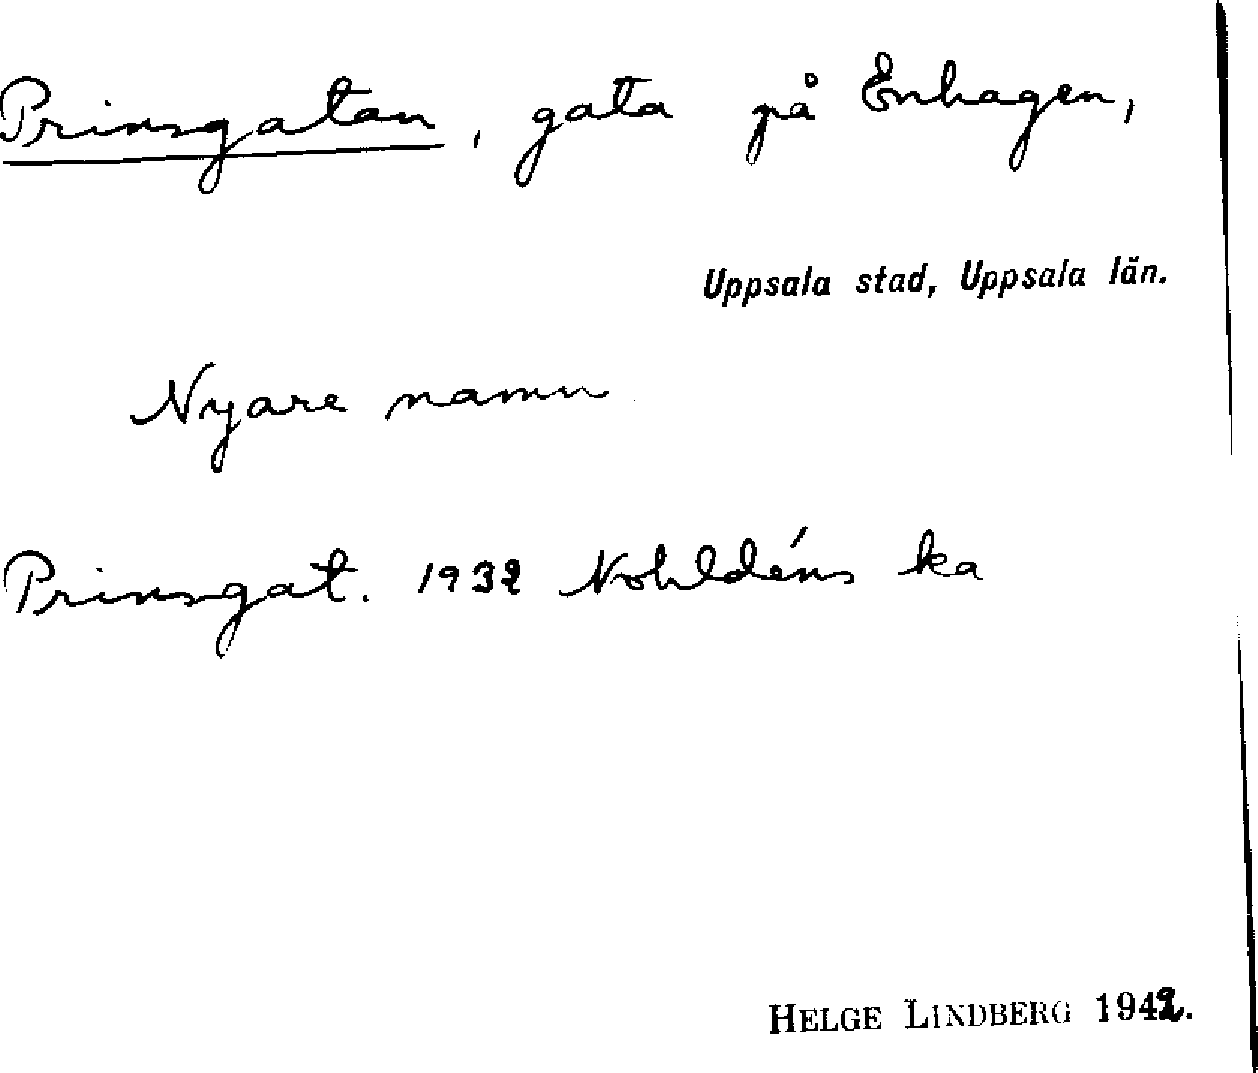 Prinsgatan, gata på Enhagen,
Uppsala stad, Uppsala län.
Nyare namn
Prinsgat. 1932 Nohldéns ka
HELGE LINDBERG 1942.